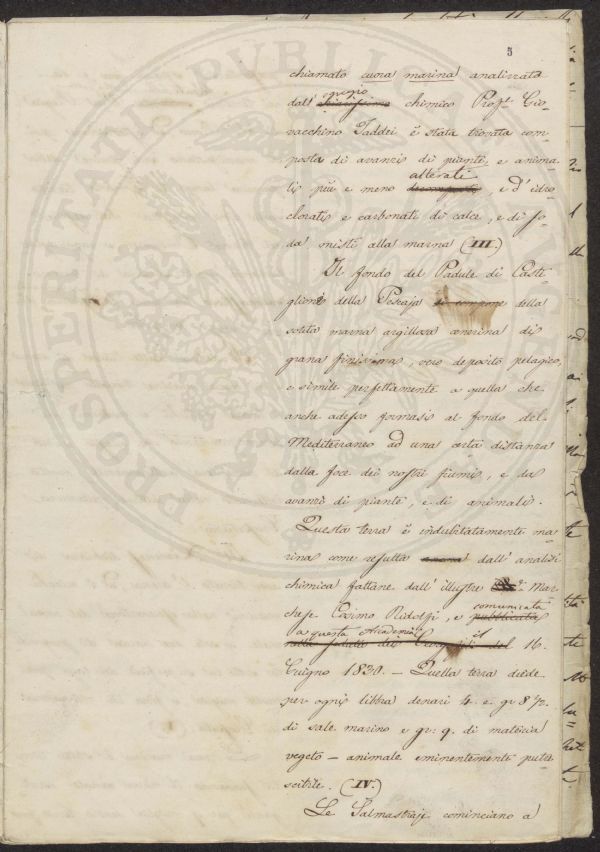 5
chiamato cuora marina analizzata
dall' egregio chiarissimo chimico Prof.r Gio-
vacchino Taddei è stata trovata com-
posta di avanzi di piante, e anima-
li più e meno alterati decomposti, e d'idro-
clorati e carbonati di calce, e di so-
da misti alla marna (III.)
Il fondo del Padule di Casti-
glione della Pescaja si compone della
solita marna argillosa cenerina di
grana finissima, vero deposito pelagico,
e simile perfettamente a quella che
anche adesso formasi al fondo del
Mediterraneo ad una certa distanza
dalla foce dei nostri fiumi, e da
avanzi di piante, e di animali.
Questa terra è indubitatamente ma-
rina come resulta dall' analisi
chimica fattane dall' illustre Mar-
chese Cosimo Ridolfi, e comunicata pubblicata
a questa Accademia il
del 16.
Giugno 1830. — Quella terra diede
per ogni libbra denari 4. e gr 8 1/2.
di sale marino e gr: 9. di materia
vegeto - animale eminentemente putre-
scibile. (IV.)
Le Salmastraje cominciano a
PROSPERITATI PUBLICAE